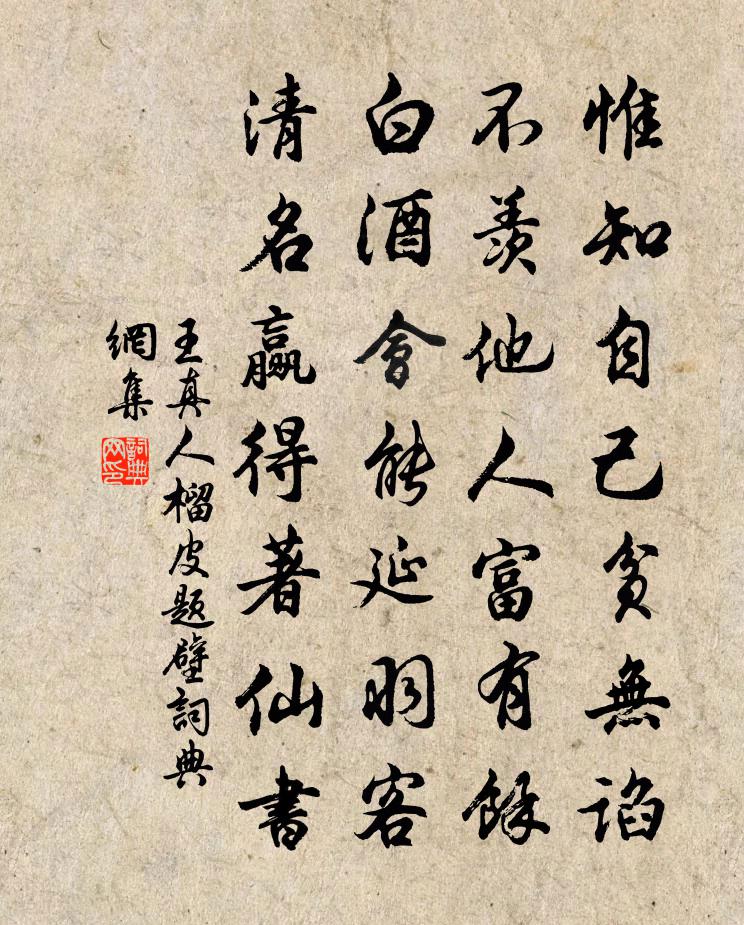 惟知自己貧無諂
不羨他人富有餘
白酒會能延羽客
清名贏得著仙書
王真人榴皮題壁詞典
網集
詞典
网印